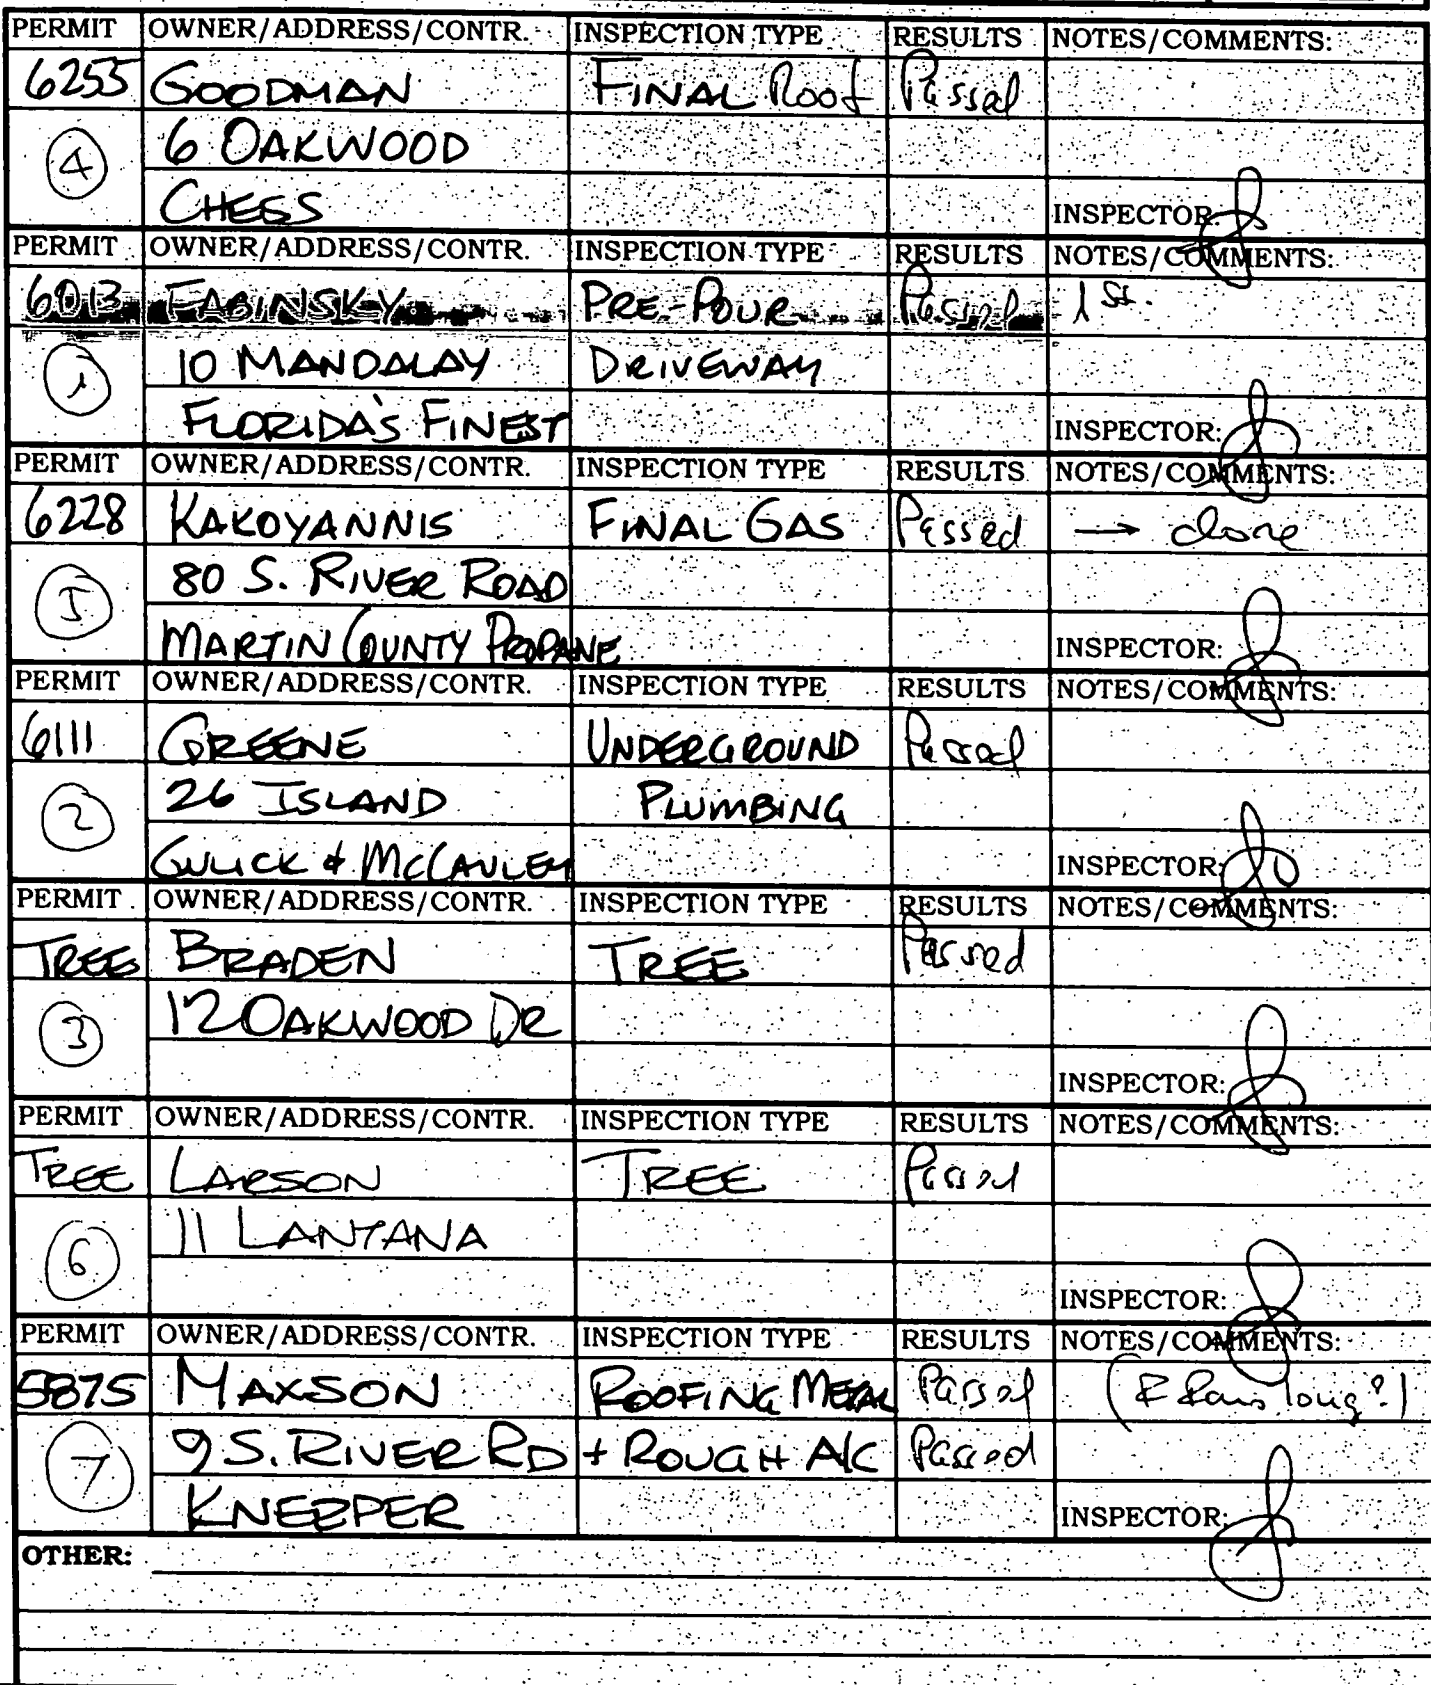 PERMIT OWNER/ADDRESS/CONTR. INSPECTION TYPE RESULTS NOTES/COMMENTS:
6255 GOODMAN FINAL Roof Passed
4 6 OAKWOOD
CHESS INSPECTOR:
PERMIT OWNER/ADDRESS/CONTR. INSPECTION TYPE RESULTS NOTES/COMMENTS:
6013 FABINSKY PRE-POUR Passed 1st.
1 10 MANDALAY DRIVEWAY
FLORIDA'S FINEST INSPECTOR:
PERMIT OWNER/ADDRESS/CONTR. INSPECTION TYPE RESULTS NOTES/COMMENTS:
6228 KAKOYANNIS FINAL GAS Passed → close
5 80 S. RIVER ROAD
MARTIN COUNTY PROPANE INSPECTOR:
PERMIT OWNER/ADDRESS/CONTR. INSPECTION TYPE RESULTS NOTES/COMMENTS:
6111 GREENE UNDERGROUND Passed
2 26 ISLAND PLUMBING
GULICK & McCAULEY INSPECTOR:
PERMIT OWNER/ADDRESS/CONTR. INSPECTION TYPE RESULTS NOTES/COMMENTS:
TREE BRADEN TREE Passed
3 12 OAKWOOD DR
INSPECTOR:
PERMIT OWNER/ADDRESS/CONTR. INSPECTION TYPE RESULTS NOTES/COMMENTS:
TREE LARSON TREE Passed
6 11 LANTANA
INSPECTOR:
PERMIT OWNER/ADDRESS/CONTR. INSPECTION TYPE RESULTS NOTES/COMMENTS:
5875 MAXSON ROOFING METAL Passed long?)
7 9 S. RIVER RD + ROUGH A/C Passed
KNEPPER INSPECTOR:
OTHER: